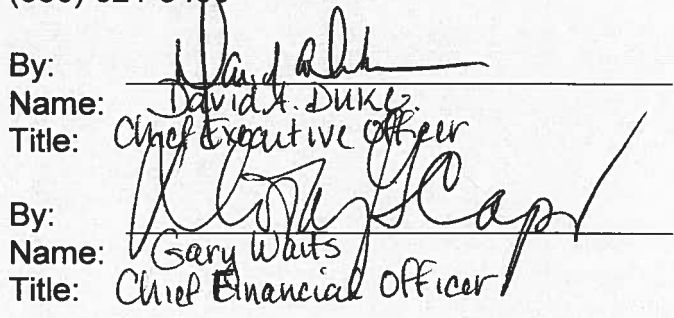 By:
Name: David A. Duke.
Title: Chief Executive Officer
By:
Name: Gary Waits
Title: Chief Financial Officer